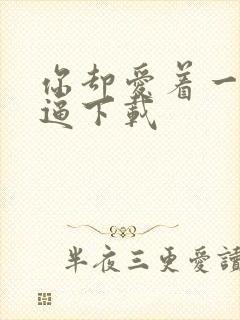 你却爱着一
逼下载
半夜三更爱读